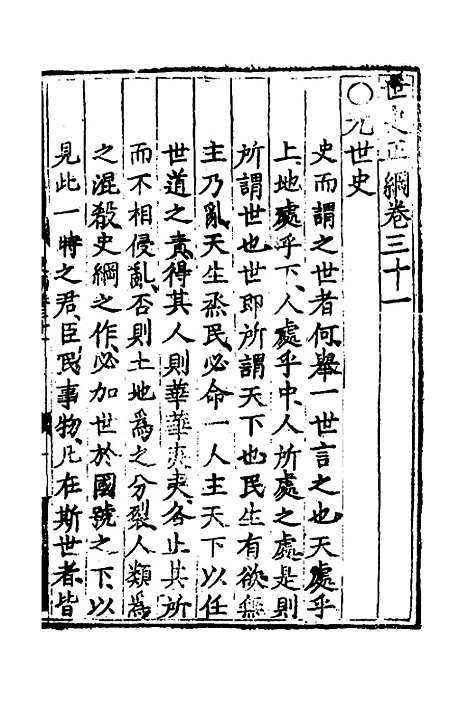 世史正綱卷三十一
○元世史
史而謂之世者何舉一世言之也天處乎
上地處乎下人處乎中人所處之處是則
所謂世也世即所謂天下也民生有欲無
主乃亂天生烝民必命一人主天下以任
世道之責得其人則華華夷夷各止其所
而不相侵亂否則土地為之分裂人類為
之混殺史綱之作必加世於國號之下以
見此一時之君臣民事物凡在斯世者皆